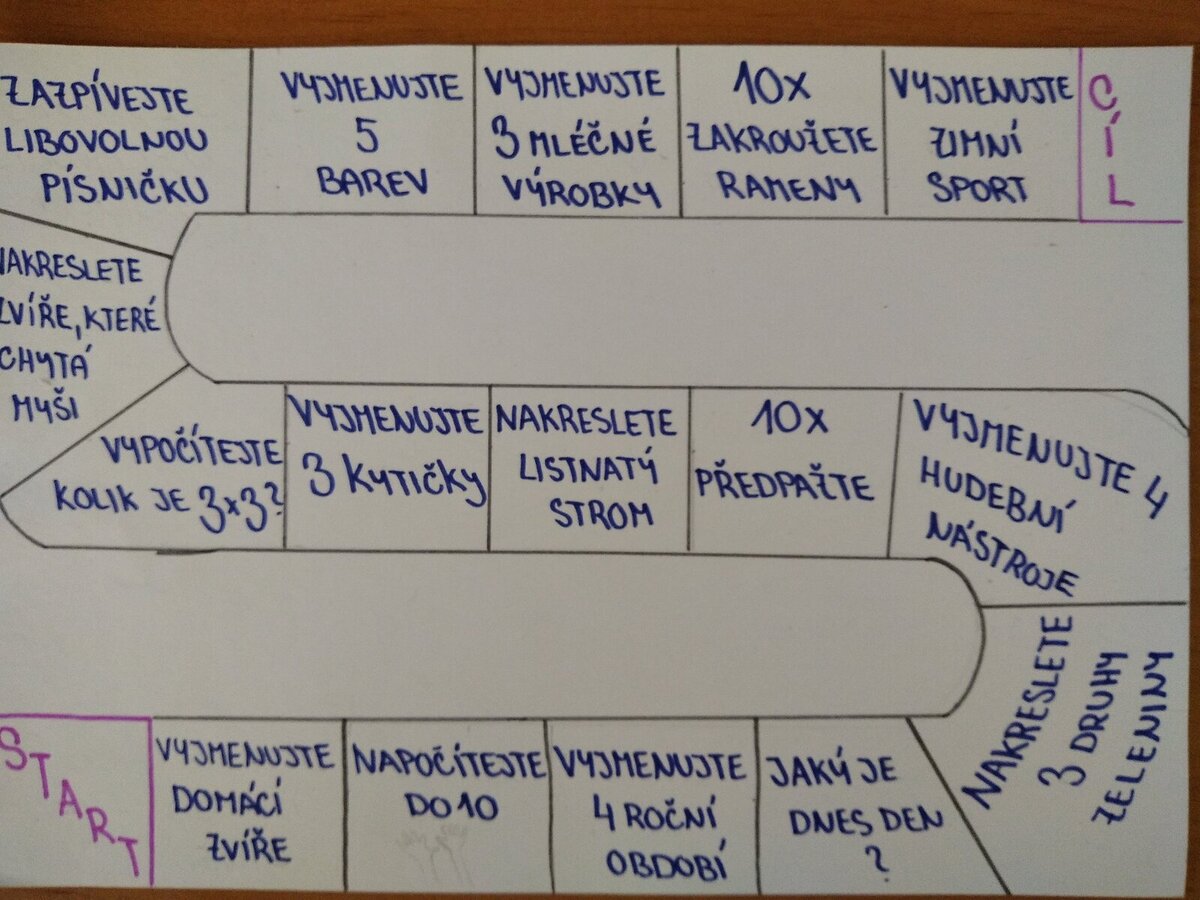 ZAZPÍVEJTE
LIBOVOLNOU
PÍSNIČKU
VYJMENUJTE
5
BAREV
VYJMENUJTE
3 MLÉČNÉ
VÝROBKY
10X
ZAKROUŽETE
RAMENY
VYJMENUJTE
ZIMNÍ
SPORT
CÍL
NAKRESLETE
ZVÍŘE, KTERÉ
CHYTÁ
MYŠI
VYPOČÍTEJTE
KOLIK JE 3x3?
VYJMENUJTE
3 KYTIČKY
NAKRESLETE
LISTNATÝ
STROM
10X
PŘEDPAŽTE
VYJMENUJTE 4
HUDEBNÍ
NÁSTROJE
NAKRESLETE
3 DRUHY
ZELENINY
START
VYJMENUJTE
DOMÁCÍ
ZVÍŘE
NAPOČÍTEJTE
DO 10
VYJMENUJTE
4 ROČNÍ
OBDOBÍ
JAKÝ JE
DNES DEN
?